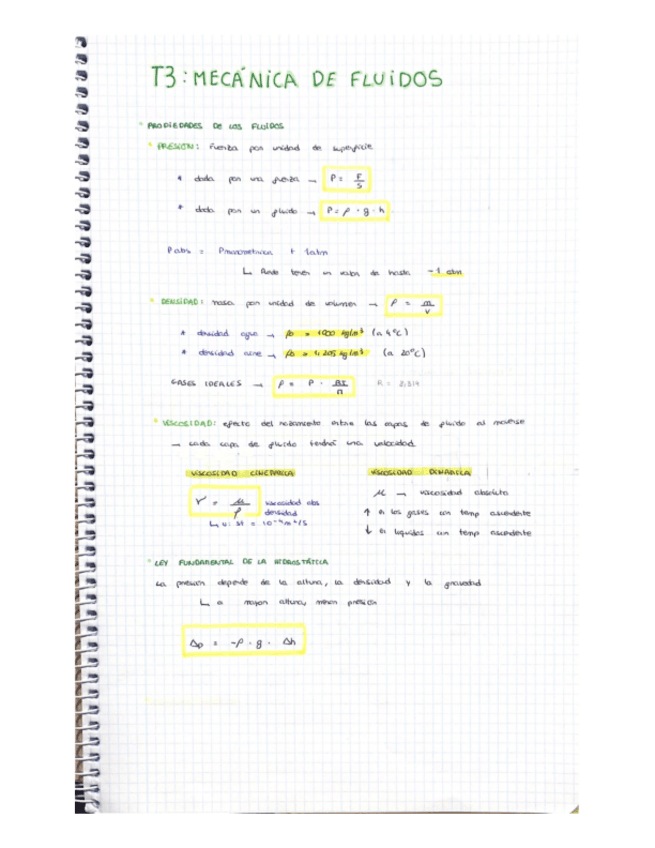 T3: MECÁNICA DE FLUIDOS
* PROPIEDADES DE LOS FLUIDOS
* PRESIÓN: Fuerza por unidad de superficie
* dada por una fuerza → P = F/S
* dado por un fluido → P = ρ · g · h
P abs = Pmanométrica + 1atm
↳ Puede tener un valor de hasta -1 atm
* DENSIDAD: masa por unidad de volumen → ρ = m/V
* densidad agua → ρ = 1000 kg/m³ (a 4°C)
* densidad aire → ρ = 1'205 kg/m³ (a 20°C)
GASES IDEALES → ρ = P · R = 8,314
* VISCOSIDAD: efecto del rozamiento entre las capas de fluido al moverse
→ cada capa de fluido tendrá una velocidad
VISCOSIDAD CINEMÁTICA
ν = μ/ρ viscosidad abs
densidad
↳ u: St = 10⁻⁴ m²/s
VISCOSIDAD DINÁMICA
μ → viscosidad absoluta
↑ en los gases con temp ascendente
↓ en líquidos con temp ascendente
* LEY FUNDAMENTAL DE LA HIDROSTÁTICA
La presión depende de la altura, la densidad y la gravedad
↳ a mayor altura, menor presión
Δp = -ρ · g · Δh